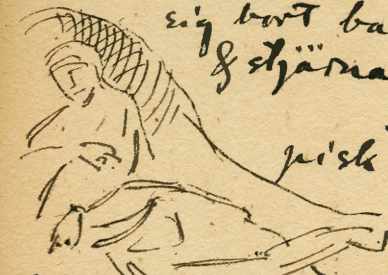 sig bort ba
& stjärna
pisk